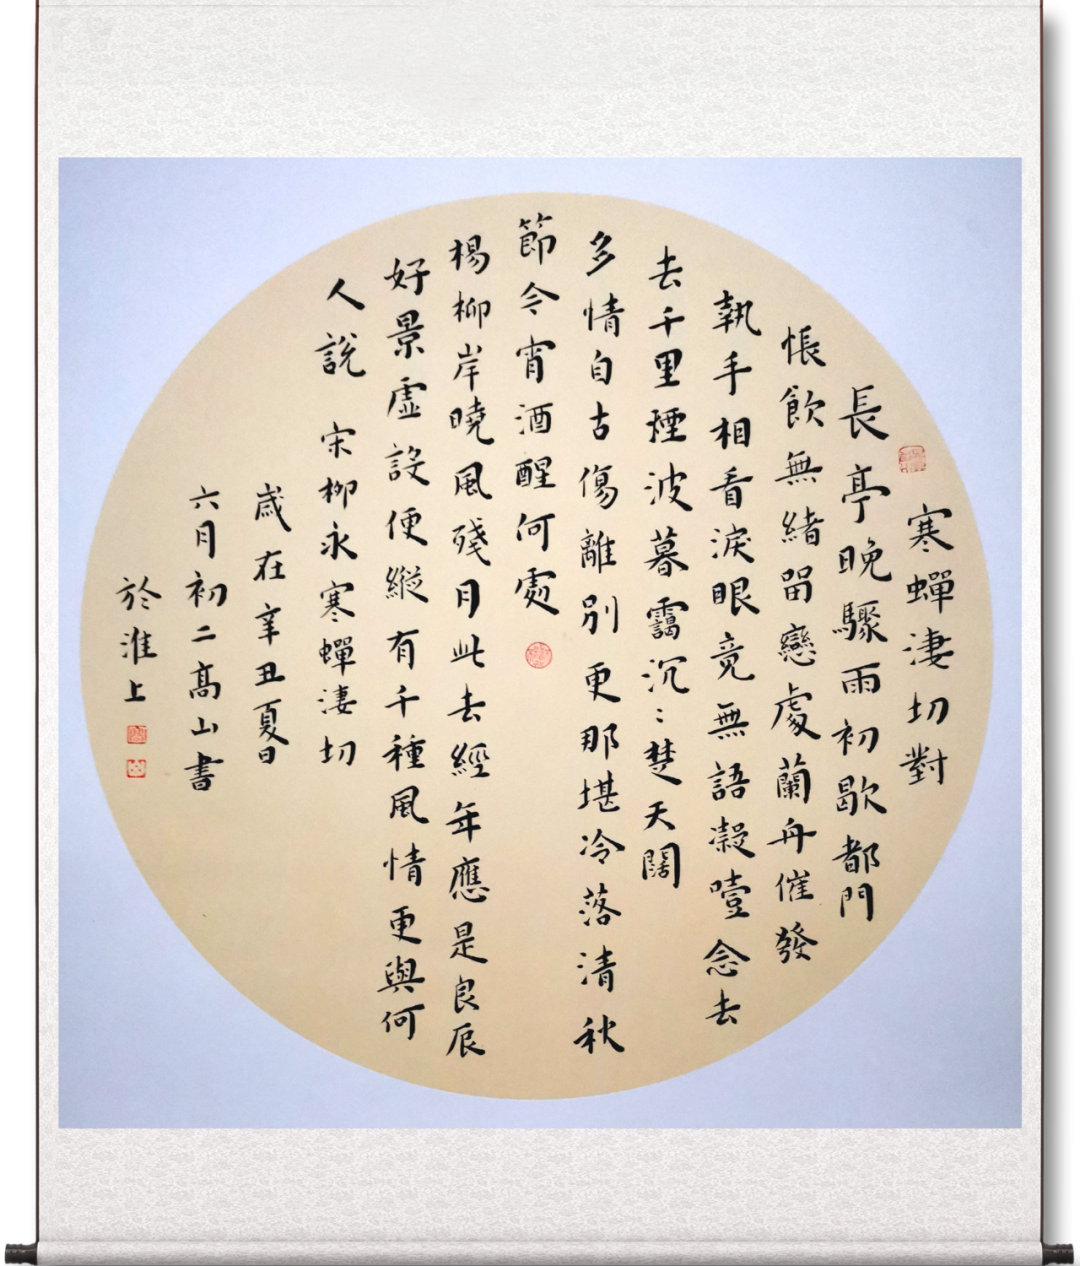 寒蟬淒切對
長亭晚驟雨初歇都門
悵飲無緒留戀處蘭舟催發
執手相看淚眼竟無語凝噎念去
去千里煙波暮靄沉:楚天闊
多情自古傷離別更那堪冷落清秋
節今宵酒醒何處
楊柳岸曉風殘月此去經年應是良辰
好景虛設便縱有千種風情更與何
人說 宋柳永寒蟬淒切
歲在辛丑夏日
六月初二高山書
於淮上